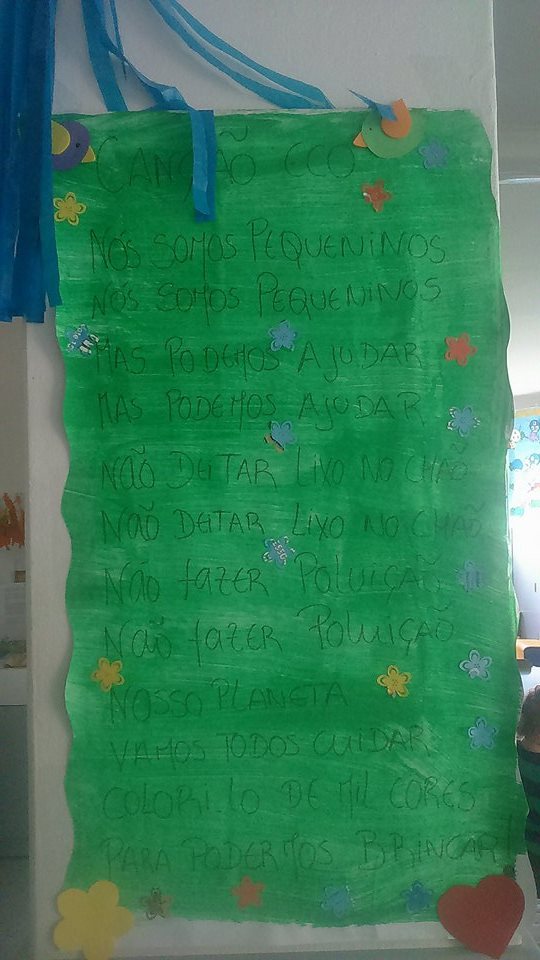 CANÇÃO ECO
NÓS SOMOS PEQUENINOS
NÓS SOMOS PEQUENINOS
MAS PODEMOS AJUDAR
MAS PODEMOS AJUDAR
NÃO DEITAR LIXO NO CHAÕ
NAÕ DEITAR LIXO NO CHAÕ
NÃO FAZER POLUIÇAÕ
NAÕ FAZER POLUIÇAÕ
NOSSO PLANETA
VAMOS TODOS CUIDAR
COLORI.LO DE MIL CORES
PARA PODERMOS BRINCAR!